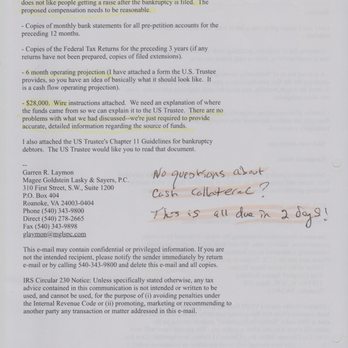 does not like people getting a raise after the bankruptcy is filed. The
proposed compensation needs to be reasonable.
- Copies of monthly bank statements for all pre-petition accounts for the
preceding 12 months.
- Copies of the Federal Tax Returns for the preceding 3 years (if any
returns have not been prepared, copies of filed extensions).
- 6 month operating projection (I have attached a form the U.S. Trustee
provides, so you have an idea of basically what it should look like. It
is a cash flow operating projection).
- $28,000. Wire instructions attached. We need an explanation of where
the funds came from so we can explain it to the US Trustee. There are no
problems with what we had discussed--we're just required to provide
accurate, detailed information regarding the source of funds.
I also attached the US Trustee's Chapter 11 Guidelines for bankruptcy
debtors. The US Trustee would like you to read that document.
--
Garren R. Laymon
Magee Goldstein Lasky & Sayers, P.C.
310 First Street, S.W., Suite 1200
P.O. Box 404
Roanoke, VA 24003-0404
Phone (540) 343-9800
Direct (540) 278-2665
Fax (540) 343-9898
glaymon@mglspc.com
No questions about
cash collateral?
This is all due in 2 days!
This e-mail may contain confidential or privileged information. If you are
not the intended recipient, please notify the sender immediately by return
e-mail or by calling 540-343-9800 and delete this e-mail and all copies.
IRS Circular 230 Notice: Unless specifically stated otherwise, any tax
advice contained in this communication is not intended or written to be
used, and cannot be used, for the purpose of (i) avoiding penalties under
the Internal Revenue Code or (ii) promoting, marketing or recommending to
another party any transaction or matter addressed in this e-mail.